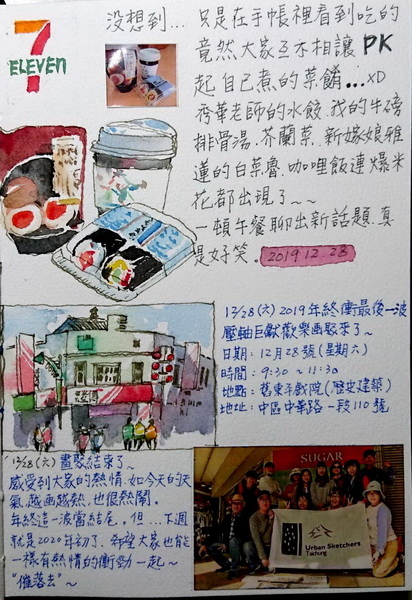 7
ELEVEN
没想到... 只是在手帳裡看到吃的
竟然大家互不相讓 PK
起自己煮的菜餚...XD
秀華老師的水餃.我的牛磅
排骨湯.芥蘭菜.新嫁娘雅
蓮的白菜魯.咖哩飯連爆米
花都出現了~~
一頓午餐聊出新話題.真
是好笑。2019.12.28
12/28(六) 2019年終衝最後一波
壓軸巨獻歡樂画聚來了~
日期: 12月28號(星期六)
時間: 9:30~11:30
地點: 舊東平戲院(歷史建築)
地址: 中區中華路一段110號
12/28(六) 畫聚結束了~
感受到大家的熱情.如今天的天
氣.越画越熱.也很熱鬧。
年終這一波富結尾。但...下週
就是2020年初了.希望大家也能
一樣有熱情的衝勁一起~
"催落去"~
SUGAR
Urban Sketchers
Taichung